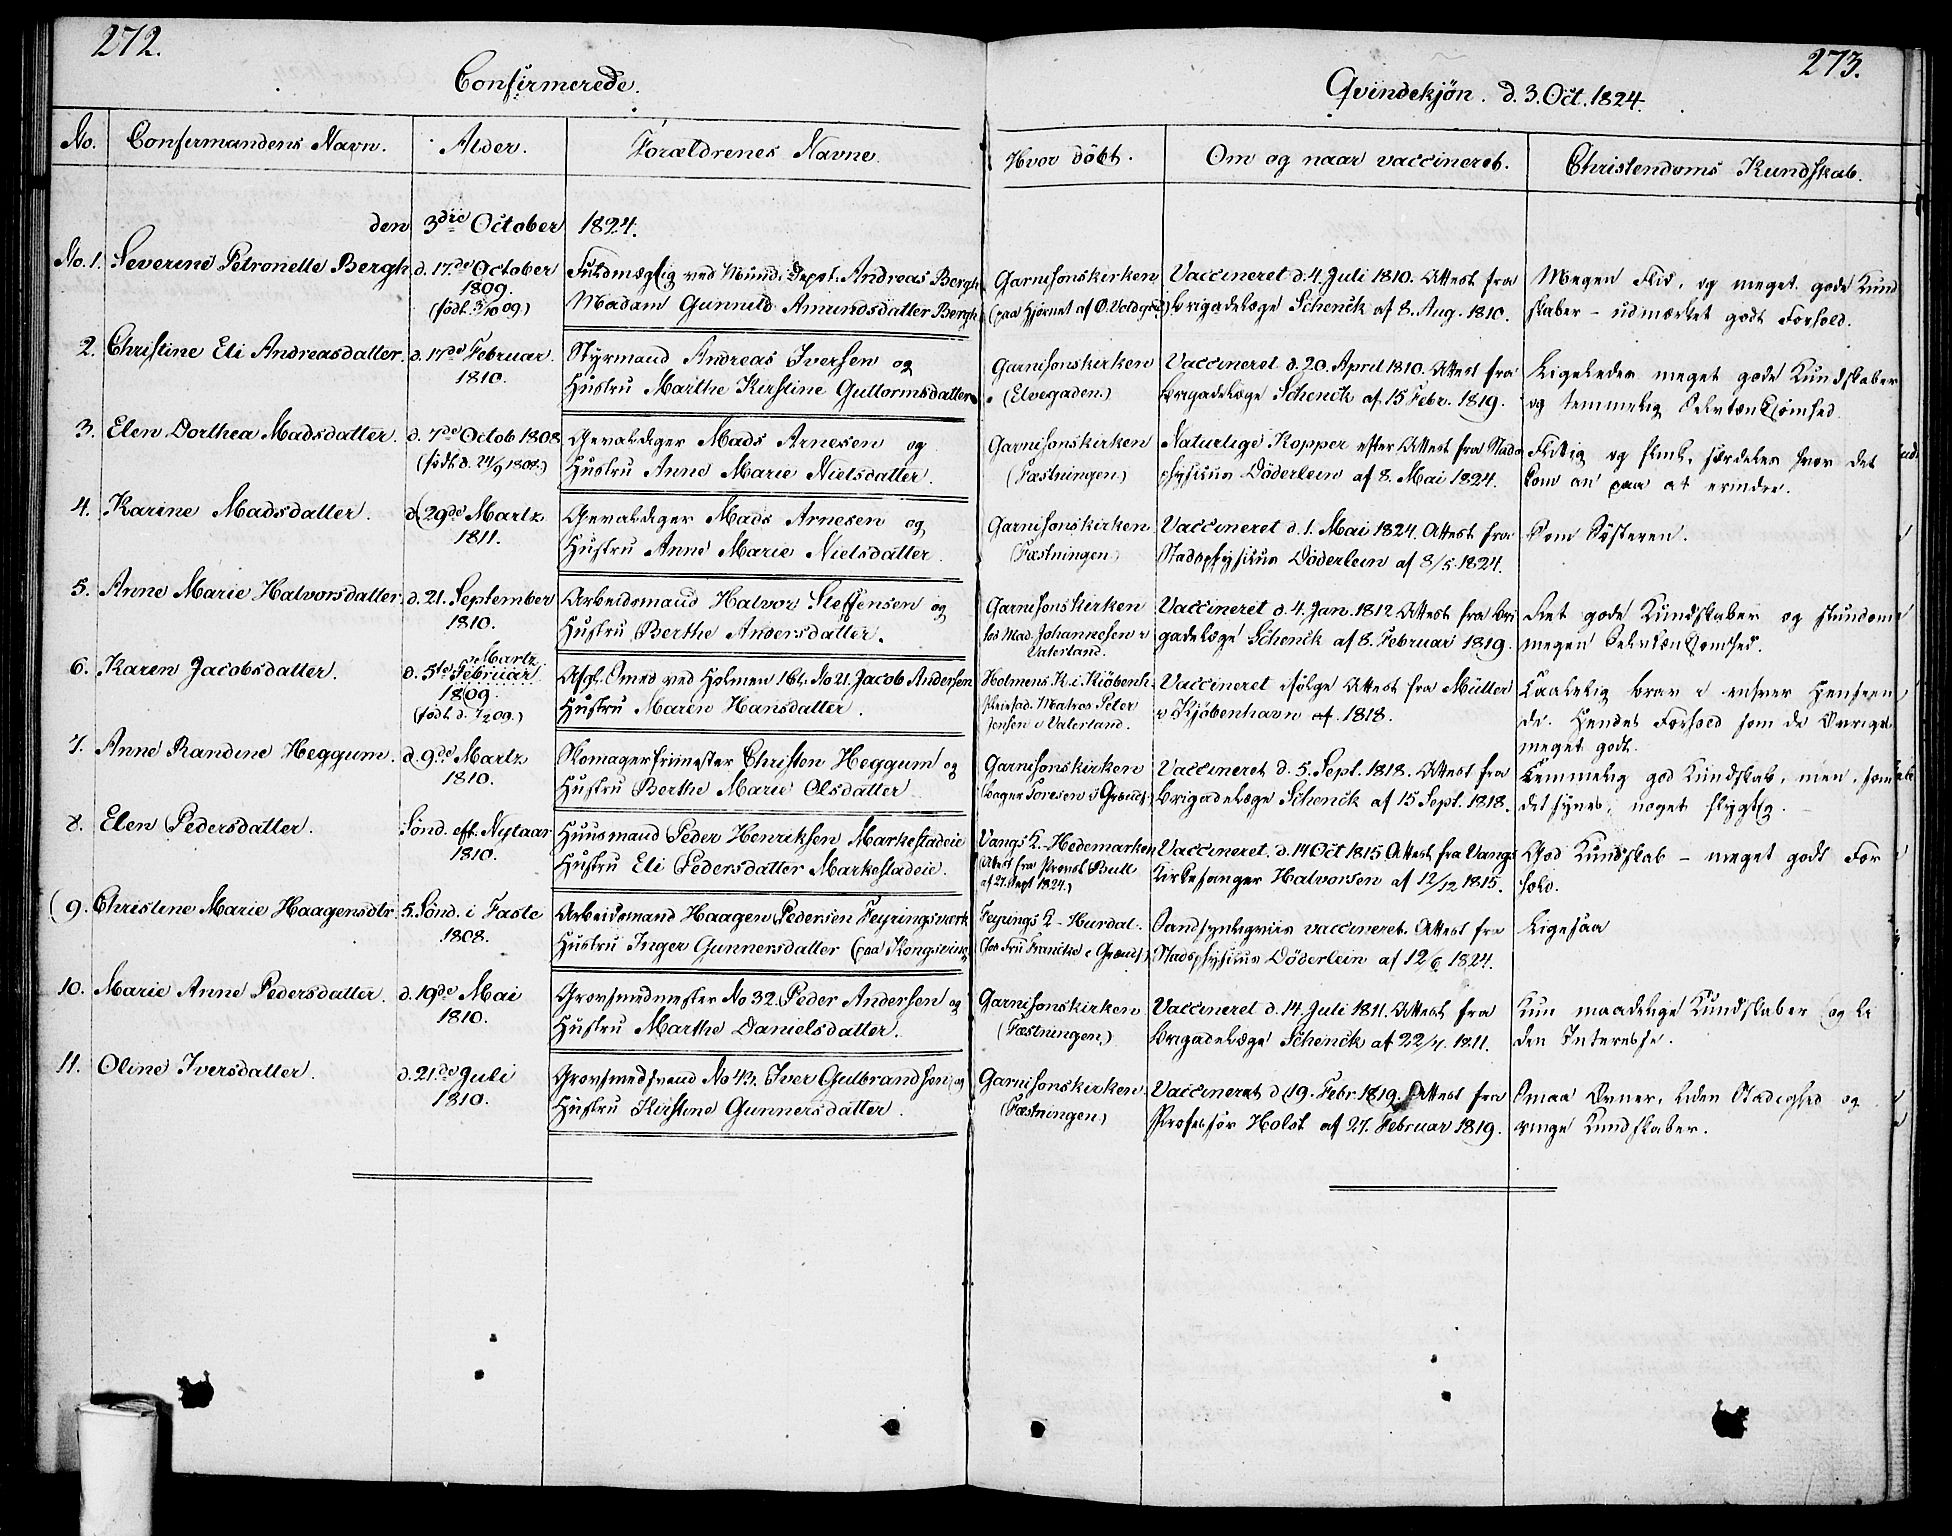 272.
Confirmerede.
No. Confirmandens Navn. Alder. Forældrenes Navne.
den 3die October 1824.
No. 1. Severine Petronelle Bergh d. 17de October Fuldmægtig ved Mund. Depot. Andreas Bergh
1809. (født 3/10 09) Madam Gunnild Amundsdatter Bergh
2. Christine Eli Andreasdatter. d. 17de Februar. Styrmand Andreas Iversen og
1810. Hustru Marthe Kirstine Guttormsdatter
3. Elen Dorthea Madsdatter. d. 7de Octob 1808 Gevaldiger Mads Arnesen og
(født d. 24/9 1808.) Hustru Anne Marie Nielsdatter.
4. Karine Madsdatter. d. 29de Martz Gevaldiger Mads Arnesen og
1811. Hustru Anne Marie Nielsdatter.
5. Anne Marie Halvorsdatter. d. 21. September Arbeidsmand Halvor Steffensen og
1810. Hustru Berthe Andersdatter.
6. Karen Jacobsdatter. d. 5te Februar Martz Afgl. Smed ved Holmen 16t. No 21. Jacob Andersen
1809 (født d. 1/2 09.) Hustru Maren Hansdatter.
7. Anne Randine Heggum. d. 9de Martz Skomagerfrimester Christen Heggum og
1810. Hustru Berthe Marie Olsdatter
8. Elen Pedersdatter. Sønd. eft. Nytaar Huusmand Peder Henriksen Markestadeie
1810. Hustru Eli Pedersdatter Markestadeie.
9. Christine Marie Haagensdtr. 5. Sønd. i Faste Arbeidsmand Haagen Pedersen Feyringsværk
1808. Hustru Inger Gunnersdatter (paa Kongsvinger
10. Marie Anne Pedersdatter. d. 19de Mai Grovsmedmester No 32. Peder Andersen og
1810. Hustru Marthe Danielsdatter.
11. Oline Iversdatter. d. 21de Juli Grovsmedsvend No 43. Iver Gulbrandsen og
1810. Hustru Kirstine Gunnersdatter.
273.
Qvindekjøn. d. 3. Oct. 1824.
Hvor døbt. Om og naar vaccineret. Christendoms Kundskab.
Garnisonskirken Vaccineret d. 4. Juli 1810. Attest fra Megen Flid, og meget gode Kund
(paa Hjørnet af Ø. Voldgade) Brigadelæge Schenck af 8. Aug. 1810. skaber - udmærket godt Forhold.
Garnisonskirken Vaccineret d. 20. April 1810. Attest fra Ligeledes meget gode Kundskaber
(Elvegaden.) Brigadelæge Schenck af 15 Febr. 1819. og temmelig Selvtænksomhed.
Garnisonskirken Naturlige Kopper efter Attest fra Stads Flittig og flink, særdeles hvor det
(Fæstningen) physikus Döderlein af 8. Mai 1824. kom an paa at erindre.
Garnisonskirken Vaccineret d. 1. Mai 1824. Attest fra Som Søsteren.
(Fæstningen) Stadsphysikus Döderlein af 8/5 1824.
Garnisonskirken Vaccineret d. 4. Jan. 1812 Attest fra Bri Ret gode Kundskaber og stundom
hos Mad. Johannesen i Vaterland. gadelæge Schenck af 8. Februar 1819. megen Selvtænksomhed.
Holmens K. i Kiöbenh. Vaccineret ifølge Attest fra Müller Taalelig brav i enhver Henseen
Matros Peter Jensen i Vaterland. i Kjøbenhavn af 1818. de. Hendes Forhold som de Øvriges
meget godt.
Garnisonskirken Vaccineret d. 5. Sept. 1818. Attest fra Temmelig god Kundskab, men, som
Bager Toresen i Grænds. Brigadelæge Schenck af 15 Sept. 1818. det synes, noget flygtig.
Vangs K. Hedemarken Vaccineret. d. 14 Oct 1815 Attest fra Vangs God Kundskab - meget godt For
(Attest fra Provst Bull af 21. Sept 1824.) Kirkesanger Halvorsen af 12/12 1815. hold.
Feyrings K - Hurdal. Sandsynligviis vaccineret. Attest fra Ligesaa
(hos Fru Francke i Grænds.) Stadsphysikus Döderlein af 12/6 1824.
Garnisonskirken Vaccineret d. 14. Juli 1811. Attest fra Kun maadelige Kundskaber og li
(Fæstningen.) Brigadelæge Schenck af 22/7. 1811. den Interesse.
Garnisonskirken Vaccineret d 19. Febr. 1819. Attest fra Smaa Evner, liden Stadighed og
(Fæstningen) Professor Holst af 27. Februar 1819. ringe Kundskaber.